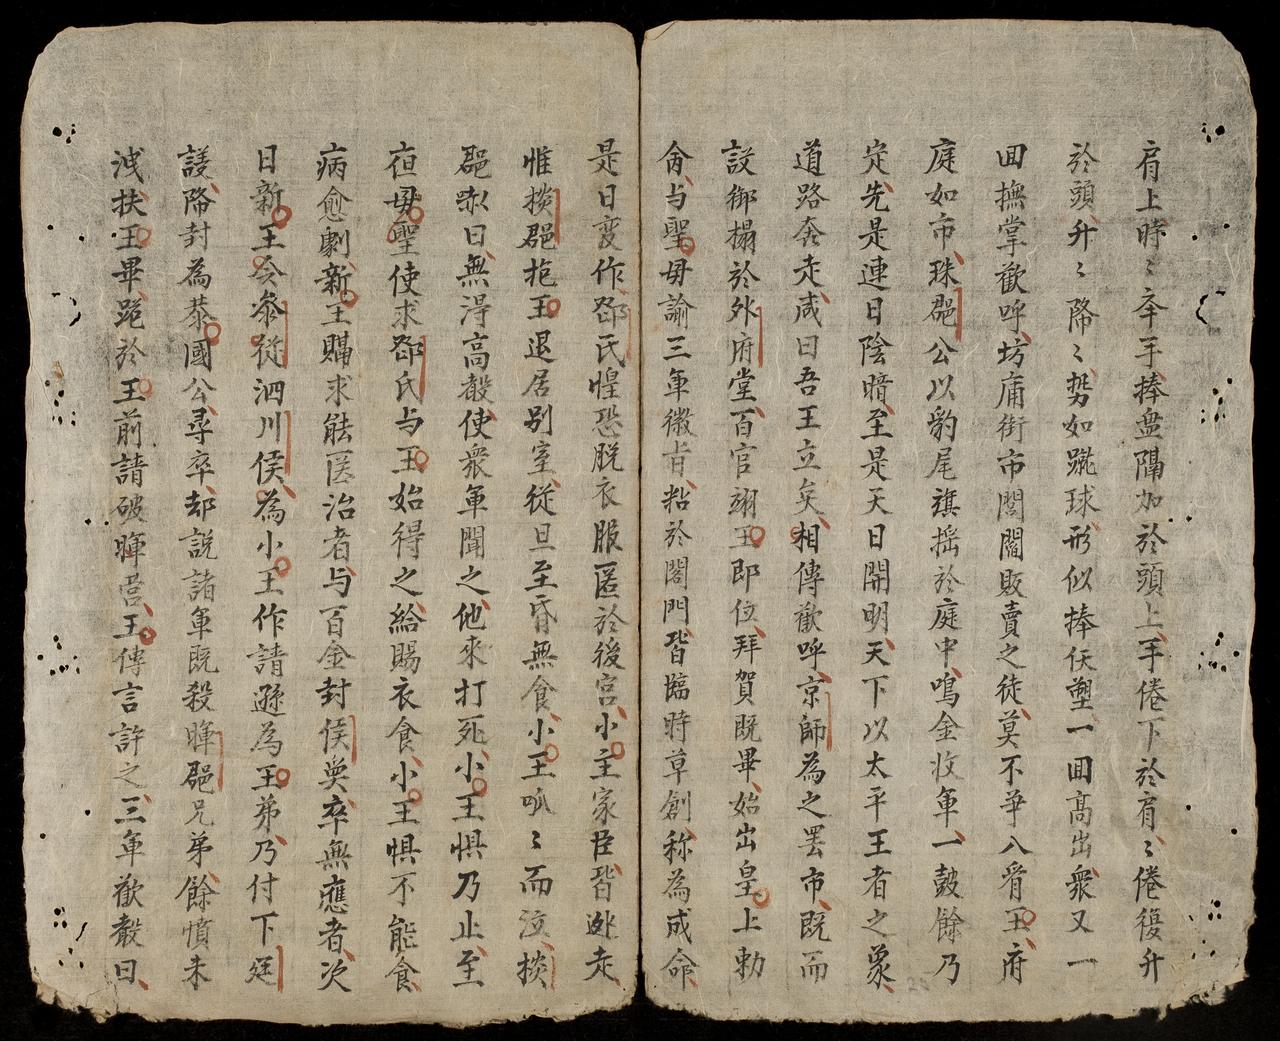 肩上時〻夲手捧盘隔加於頭上手倦下於肩〻倦復升
於頭升〻降〻势如蹴球形似捧仸塑一囬高出衆又一
囬撫掌歡呼坊庸街市閭閻販賣之徒莫不爭入胥王府
庭如市珠郡公以豹尾旗摇於庭中鳴金收軍一鼓餘乃
定先是連日陰暗至是天日開明天下以太平王者之象
道路奔走咸曰吾王立矣相傳歡呼京師為之罢市既而
設御榻於外府堂百官翊王即位拜賀既畢始出皇上勅
侖与聖毋諭三軍徽旨粘於閣門皆臨時草創称為成命
是日变作郃氏惶恐脱衣服匿於後宫小主家臣皆迯走
惟掞郡抱王退居别室從旦至昏無食小王呱〻而泣掞
郡㘅曰無淂高聲使衆軍聞之他來打死小王惧乃止至
夜毋聖使求郃氏与王始得之給賜衣食小王惧不能食
病愈劇新王購求能医治者与百金封侯奐卒無應者次
日新王令叅從泗川侯為小王作請遜為王弟乃付下廷
議降封為恭國公尋卒却説諸軍既殺暉郡兄弟餘憤未
洩扶王畢跪於王前請破暉营王傳言許之三軍歡聲曰